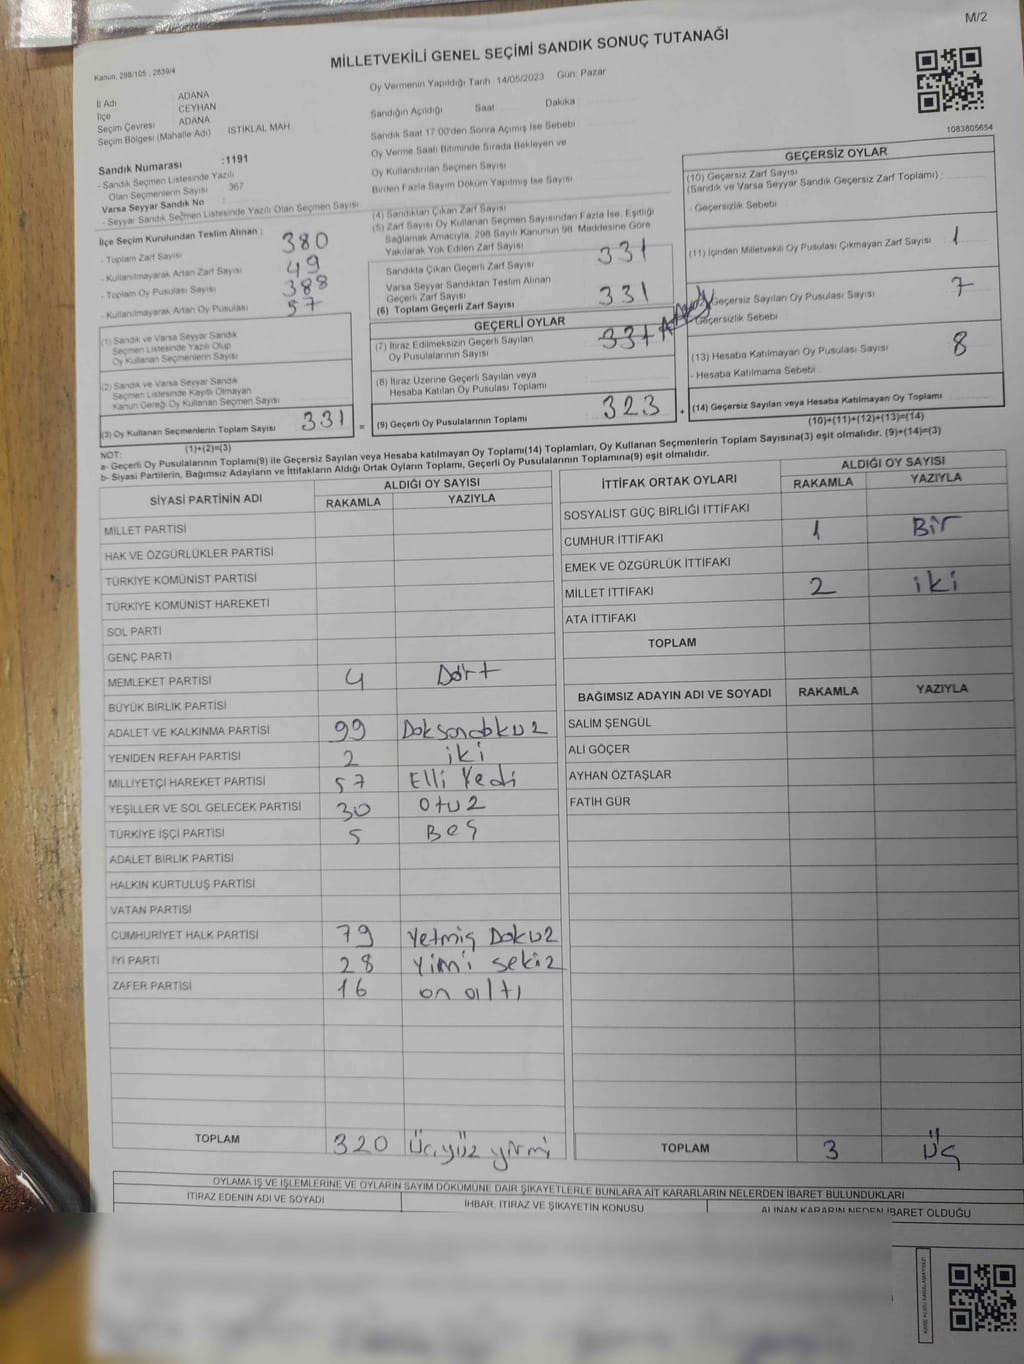 M/2
MİLLETVEKİLİ GENEL SEÇİMİ SANDIK SONUÇ TUTANAĞI
Kanun, 298/105 , 2839/4
İl Adı ADANA
İlçe CEYHAN
Seçim Çevresi ADANA
Seçim Bölgesi (Mahalle Adı) ISTIKLAL MAH.
Sandık Numarası :1191
- Sandık Seçmen Listesinde Yazılı
Olan Seçmenlerin Sayısı 367
Varsa Seyyar Sandık No :
- Seyyar Sandık Seçmen Listesinde Yazılı Olan Seçmen Sayısı
Oy Vermenin Yapıldığı Tarih 14/05/2023 Gün: Pazar
Sandığın Açıldığı Saat Dakika
Sandık Saat 17.00'den Sonra Açımış İse Sebebi
Oy Verme Saati Bitiminde Sırada Bekleyen ve
Oy Kullandırılan Seçmen Sayısı
Birden Fazla Sayım Döküm Yapılmış İse Sayısı
1083805654
İlçe Seçim Kurulundan Teslim Alınan ;
- Toplam Zarf Sayısı 380
- Kullanılmayarak Artan Zarf Sayısı 49
- Toplam Oy Pusulası Sayısı 388
- Kullanılmayarak Artan Oy Pusulası 57
(1) Sandık ve Varsa Seyyar Sandık
Seçmen Listesinde Yazılı Olup
Oy Kullanan Seçmenlerin Sayısı
(2) Sandık ve Varsa Seyyar Sandık
Seçmen Listesinde Kayıtlı Olmayan
Kanun Gereği Oy Kullanan Seçmen Sayısı
(3) Oy Kullanan Seçmenlerin Toplam Sayısı 331
(1)+(2)=(3)
(4) Sandıktan Çıkan Zarf Sayısı
(5) Zarf Sayısı Oy Kullanan Seçmen Sayısından Fazla İse, Eşitliği
Sağlamak Amacıyla, 298 Sayılı Kanunun 98. Maddesine Göre
Yakılarak Yok Edilen Zarf Sayısı
Sandıkta Çıkan Geçerli Zarf Sayısı 331
Varsa Seyyar Sandıktan Teslim Alınan
Geçerli Zarf Sayısı
(6) Toplam Geçerli Zarf Sayısı 331
GEÇERLİ OYLAR
(7) İtiraz Edilmeksizin Geçerli Sayılan
Oy Pusulalarının Sayısı 331
(8) İtiraz Üzerine Geçerli Sayılan veya
Hesaba Katılan Oy Pusulası Toplamı
= (9) Geçerli Oy Pusulalarının Toplamı 323 +
GEÇERSİZ OYLAR
(10) Geçersiz Zarf Sayısı
(Sandık ve Varsa Seyyar Sandık Geçersiz Zarf Toplamı)
- Geçersizlik Sebebi
(11) İçinden Milletvekili Oy Pusulası Çıkmayan Zarf Sayısı 1
Geçersiz Sayılan Oy Pusulası Sayısı 7
Geçersizlik Sebebi
(13) Hesaba Katılmayan Oy Pusulası Sayısı 8
- Hesaba Katılmama Sebebi
(14) Geçersiz Sayılan veya Hesaba Katılmayan Oy Toplamı
(10)+(11)+(12)+(13)=(14)
NOT:
a- Geçerli Oy Pusulalarının Toplamı(9) ile Geçersiz Sayılan veya Hesaba katılmayan Oy Toplamı(14) Toplamları, Oy Kullanan Seçmenlerin Toplam Sayısına(3) eşit olmalıdır. (9)+(14)=(3)
b- Siyasi Partilerin, Bağımsız Adayların ve İttifakların Aldığı Ortak Oyların Toplamı, Geçerli Oy Pusulalarının Toplamına(9) eşit olmalıdır.
SİYASİ PARTİNİN ADI ALDIĞI OY SAYISI
RAKAMLA YAZIYLA
MİLLET PARTİSİ
HAK VE ÖZGÜRLÜKLER PARTİSİ
TÜRKİYE KOMÜNİST PARTİSİ
TÜRKİYE KOMÜNİST HAREKETİ
SOL PARTİ
GENÇ PARTİ
MEMLEKET PARTİSİ 4 Dört
BÜYÜK BİRLİK PARTİSİ
ADALET VE KALKINMA PARTİSİ 99 Doksandokuz
YENİDEN REFAH PARTİSİ 2 iki
MİLLİYETÇİ HAREKET PARTİSİ 57 Elli Yedi
YEŞİLLER VE SOL GELECEK PARTİSİ 30 Otuz
TÜRKİYE İŞÇİ PARTİSİ 5 Beş
ADALET BİRLİK PARTİSİ
HALKIN KURTULUŞ PARTİSİ
VATAN PARTİSİ
CUMHURİYET HALK PARTİSİ 79 Yetmiş Dokuz
İYİ PARTİ 28 Yirmi sekiz
ZAFER PARTİSİ 16 on altı
TOPLAM 320 Üçyüz yirmi
İTTİFAK ORTAK OYLARI ALDIĞI OY SAYISI
RAKAMLA YAZIYLA
SOSYALİST GÜÇ BİRLİĞİ İTTİFAKI
CUMHUR İTTİFAKI 1 Bir
EMEK VE ÖZGÜRLÜK İTTİFAKI
MİLLET İTTİFAKI 2 iki
ATA İTTİFAKI
TOPLAM
BAĞIMSIZ ADAYIN ADI VE SOYADI RAKAMLA YAZIYLA
SALİM ŞENGÜL
ALİ GÖÇER
AYHAN ÖZTAŞLAR
FATİH GÜR
TOPLAM 3 Üç
OYLAMA İŞ VE İŞLEMLERİNE VE OYLARIN SAYIM DÖKÜMÜNE DAİR ŞİKAYETLERLE BUNLARA AİT KARARLARIN NELERDEN İBARET BULUNDUKLARI
İTİRAZ EDENİN ADI VE SOYADI
İHBAR, İTİRAZ VE ŞİKAYETİN KONUSU
ALINAN KARARIN NEDEN İBARET OLDUĞU